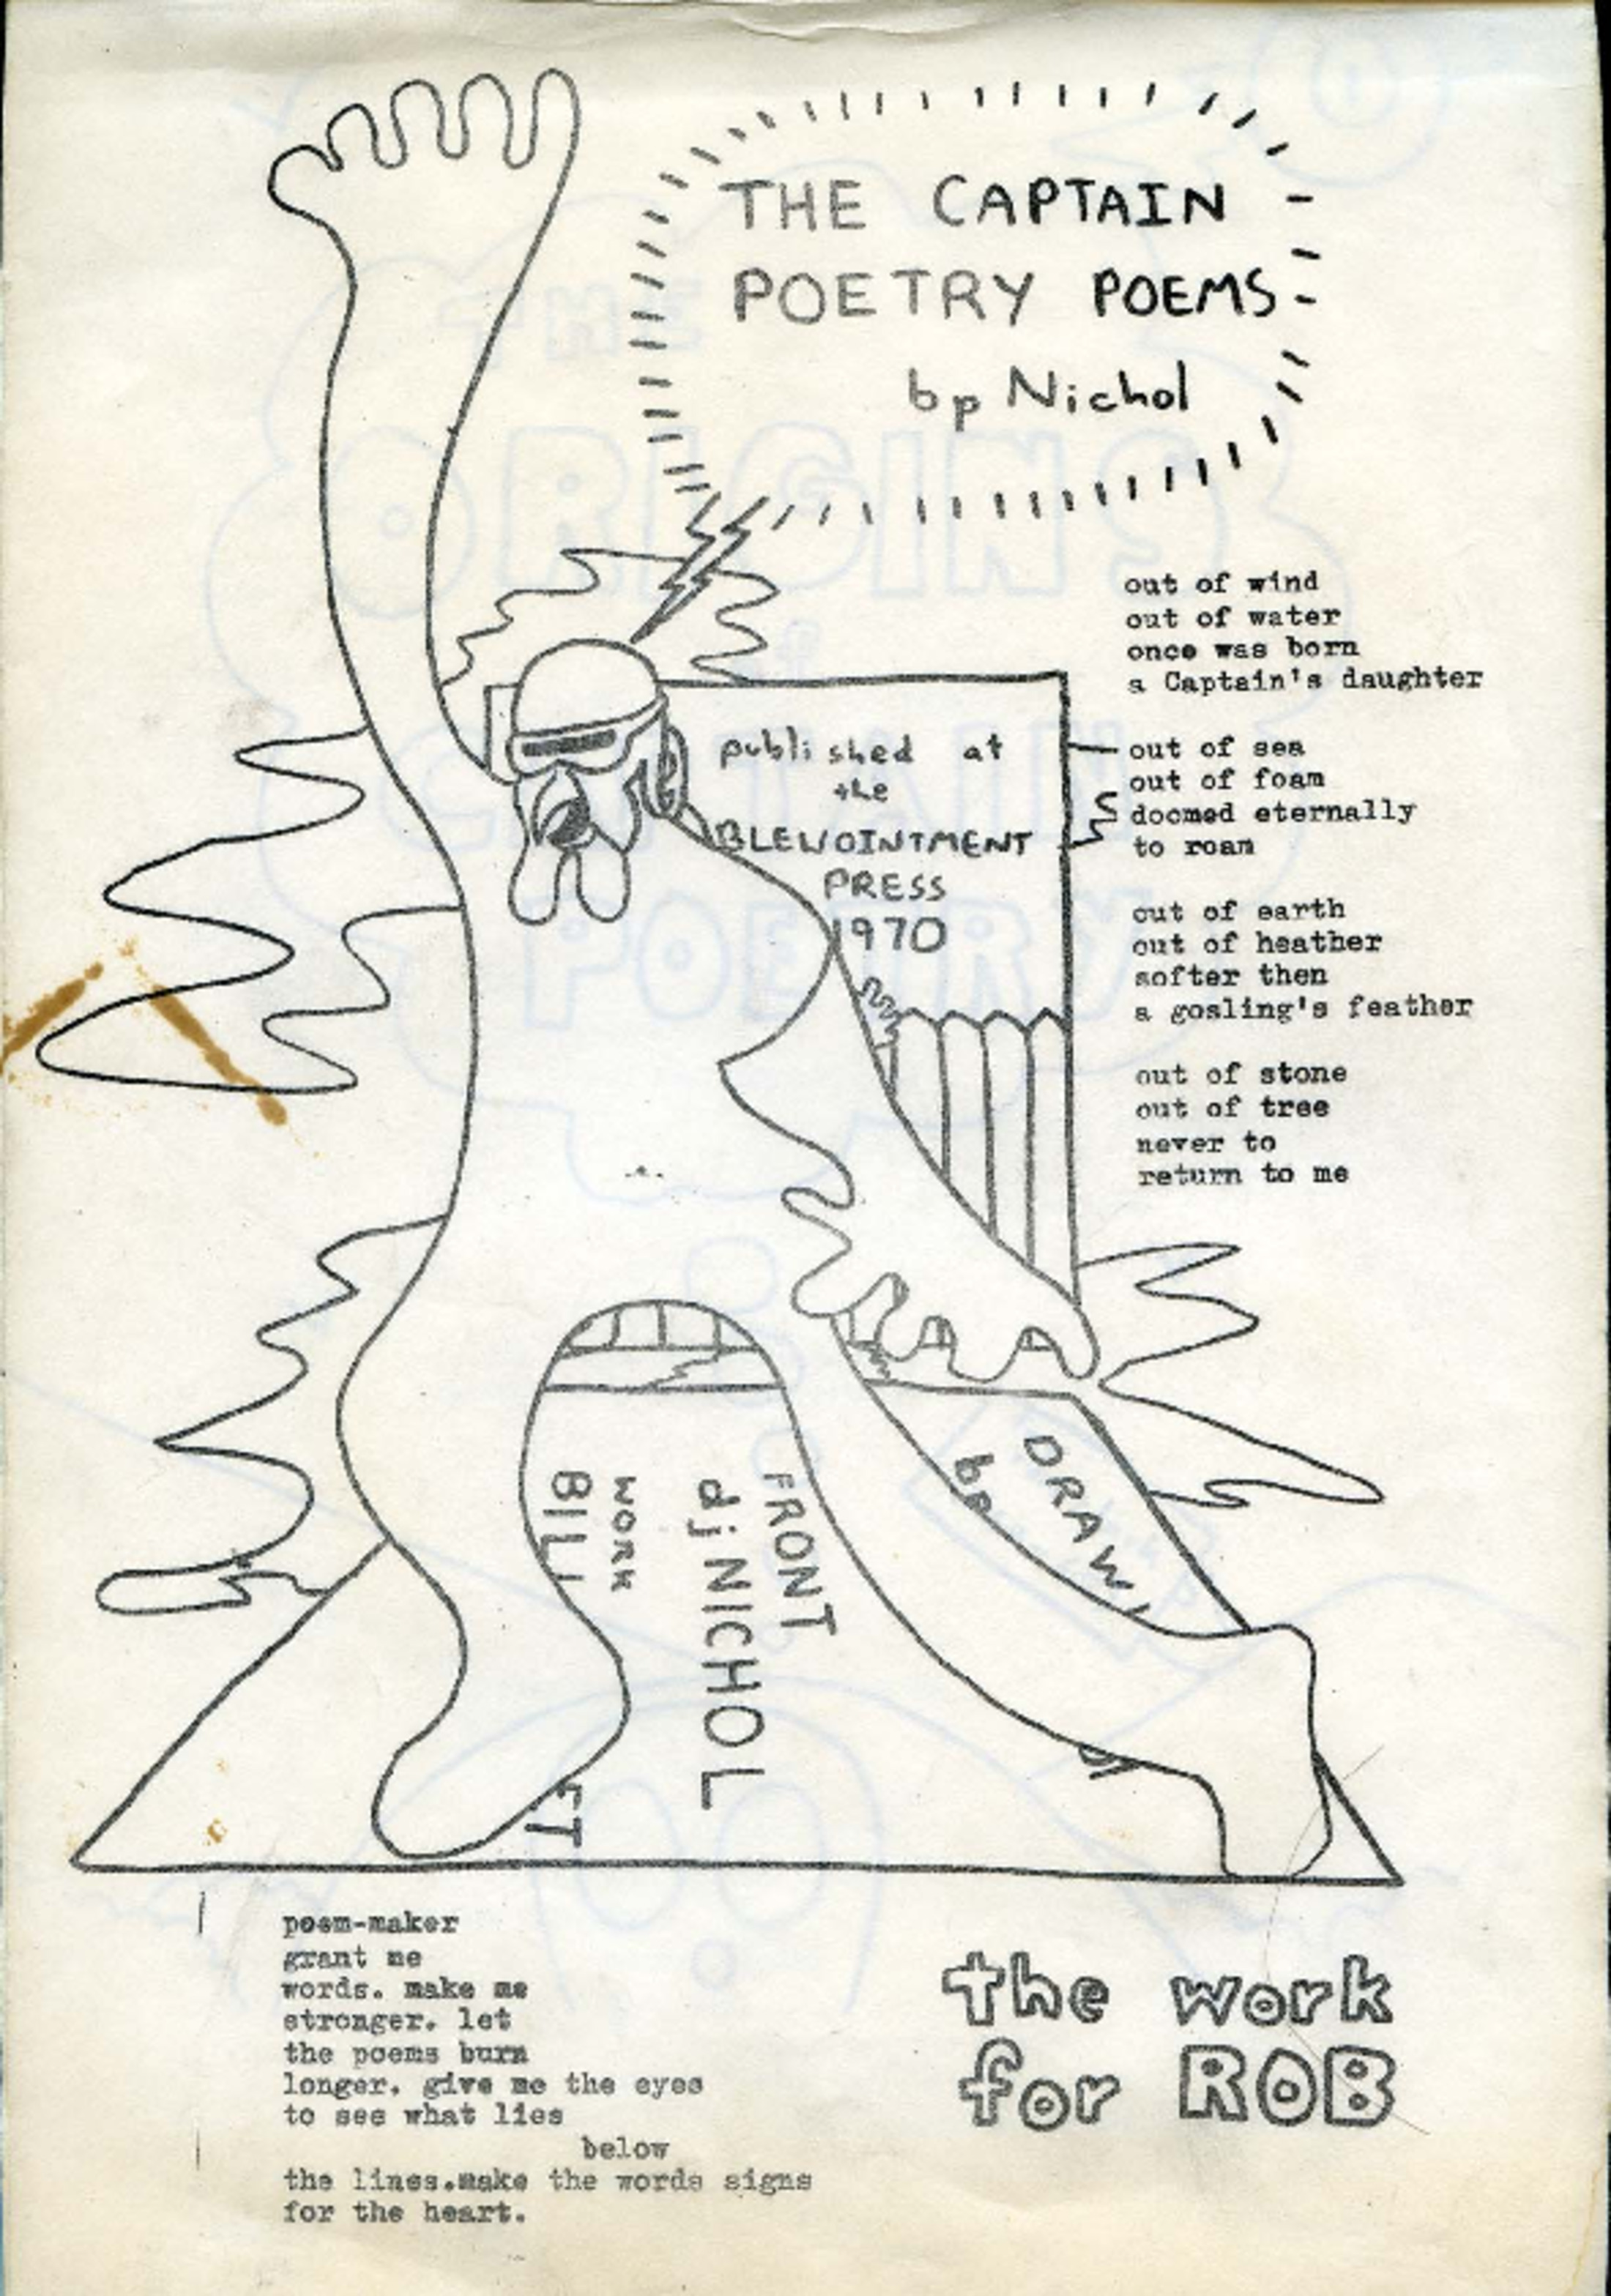 THE CAPTAIN
POETRY POEMS
bp Nichol
out of wind
out of water
once was born
a Captain's daughter
published at
the
BLEWOINTMENT
PRESS
1970
out of sea
out of foam
doomed eternally
to roam
out of earth
out of heather
softer then
a gosling's feather
out of stone
out of tree
never to
return to me
FRONT
dj NICHOL
WORK
BILL
FT
DRAWI
bp
poem-maker
grant me
words. make me
stronger. let
the poems burn
longer. give me the eyes
to see what lies
below
the lines.make the words signs
for the heart.
the work
for ROB